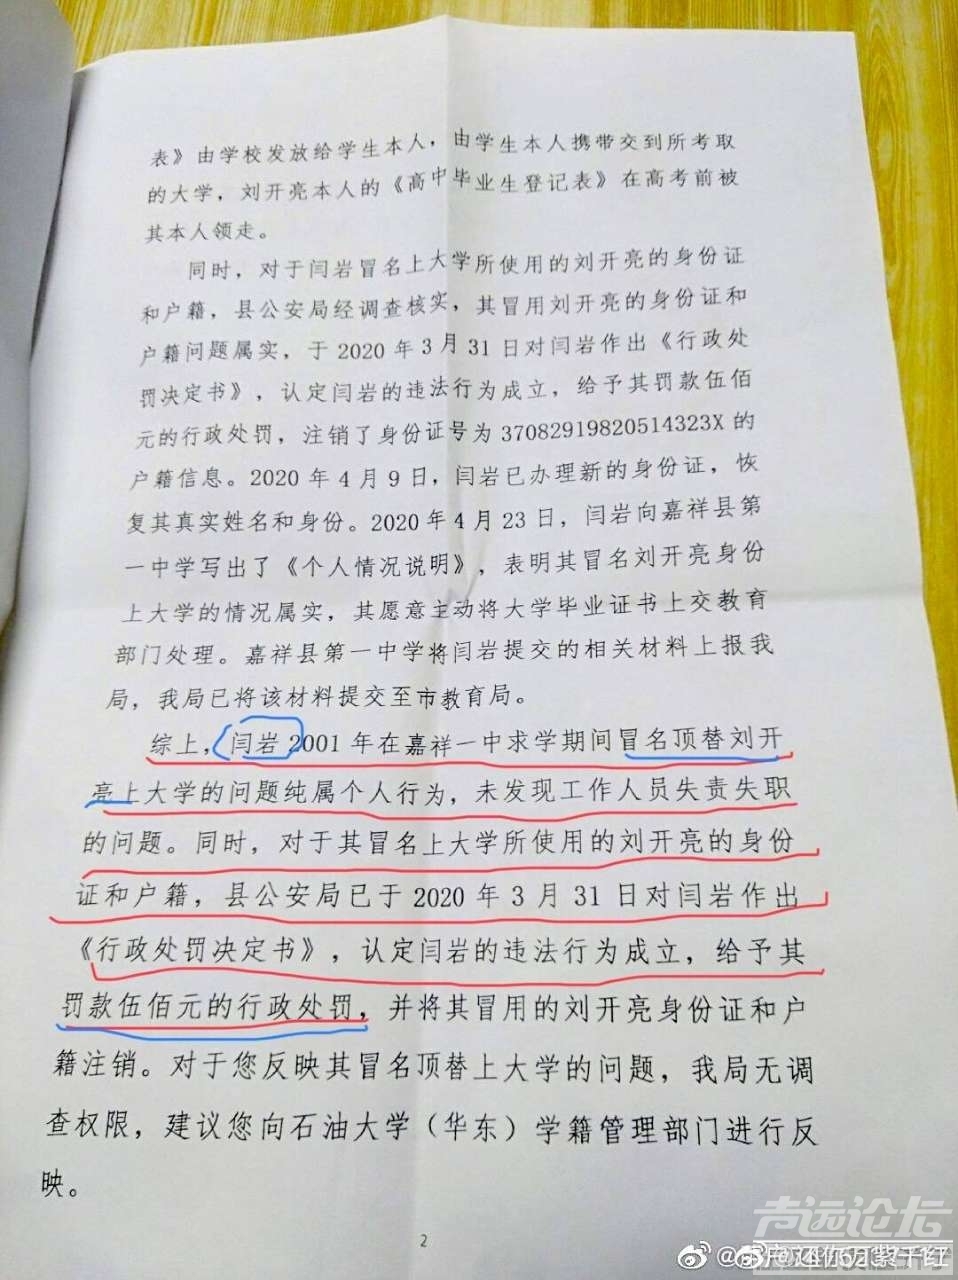 表》由学校发放给学生本人，由学生本人携带交到所考取
的大学，刘开亮本人的《高中毕业生登记表》在高考前被
其本人领走。
同时，对于闫岩冒名上大学所使用的刘开亮的身份证
和户籍，县公安局经调查核实，其冒用刘开亮的身份证和
户籍问题属实，于2020年3月31日对闫岩作出《行政处
罚决定书》，认定闫岩的违法行为成立，给予其罚款伍佰
元的行政处罚，注销了身份证号为37082919820514323X的
户籍信息。2020年4月9日，闫岩已办理新的身份证，恢
复其真实姓名和身份。2020年4月23日，闫岩向嘉祥县第
一中学写出了《个人情况说明》，表明其冒名刘开亮身份
上大学的情况属实，其愿意主动将大学毕业证书上交教育
部门处理。嘉祥县第一中学将闫岩提交的相关材料上报我
局，我局已将该材料提交至市教育局。
综上，闫岩2001年在嘉祥一中求学期间冒名顶替刘开
亮上大学的问题纯属个人行为，未发现工作人员失责失职
的问题。同时，对于其冒名上大学所使用的刘开亮的身份
证和户籍，县公安局已于2020年3月31日对闫岩作出
《行政处罚决定书》，认定闫岩的违法行为成立，给予其
罚款伍佰元的行政处罚，并将其冒用的刘开亮身份证和户
籍注销。对于您反映其冒名顶替上大学的问题，我局无调
查权限，建议您向石油大学（华东）学籍管理部门进行反
映。
2
声远论坛